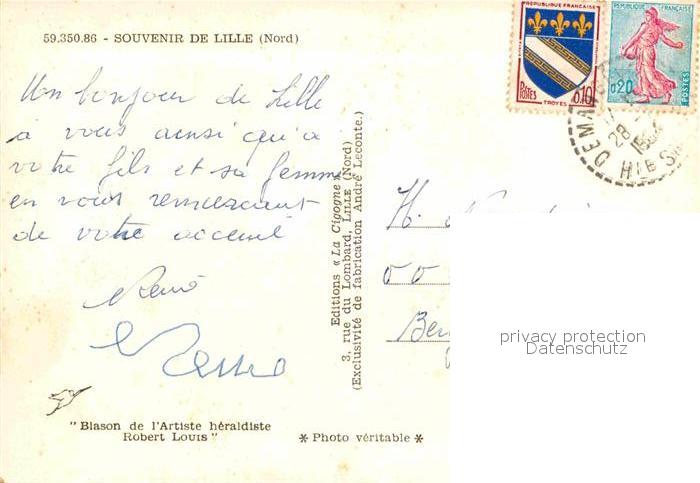 59.350.86 - SOUVENIR DE LILLE (Nord)
RÉPUBLIQUE FRANÇAISE
POSTES
0,10
TROYES
REPUBLIQUE FRANÇAISE
0,20
POSTES
28
Un bonjour de Lille
à vous ainsi qu'a
votre fils et sa femme
en vous remerciant
de votre acceuil
René
Editions « La Cigogne »
3, rue du Lombard, LILLE (Nord)
(Exclusivité de fabrication André Leconte.)
privacy protection
Datenschutz
"Blason de l'Artiste héraldiste
Robert LOUIS"
* Photo véritable *